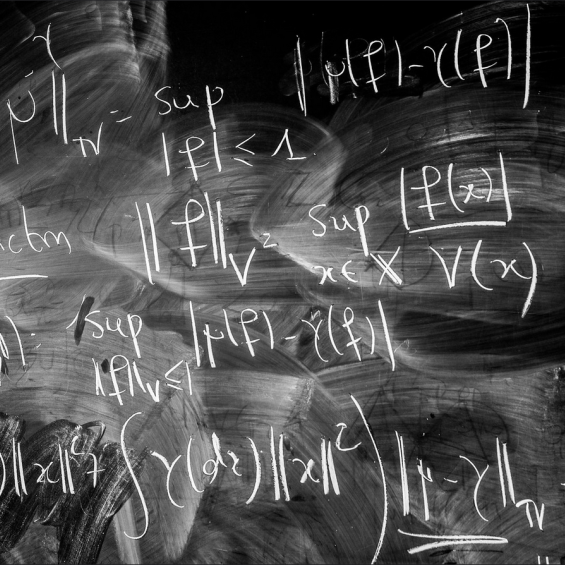 μ - γ‖_TV = sup_{|f| ≤ 1} |μ(f) - γ(f)|
‖f‖_V = sup_{x ∈ X} |f(x)| / V(x)
sup_{‖f‖_V ≤ 1} |μ(f) - γ(f)|
‖x‖² + ∫ γ(dx) ‖x‖² ) ‖μ - γ‖_TV